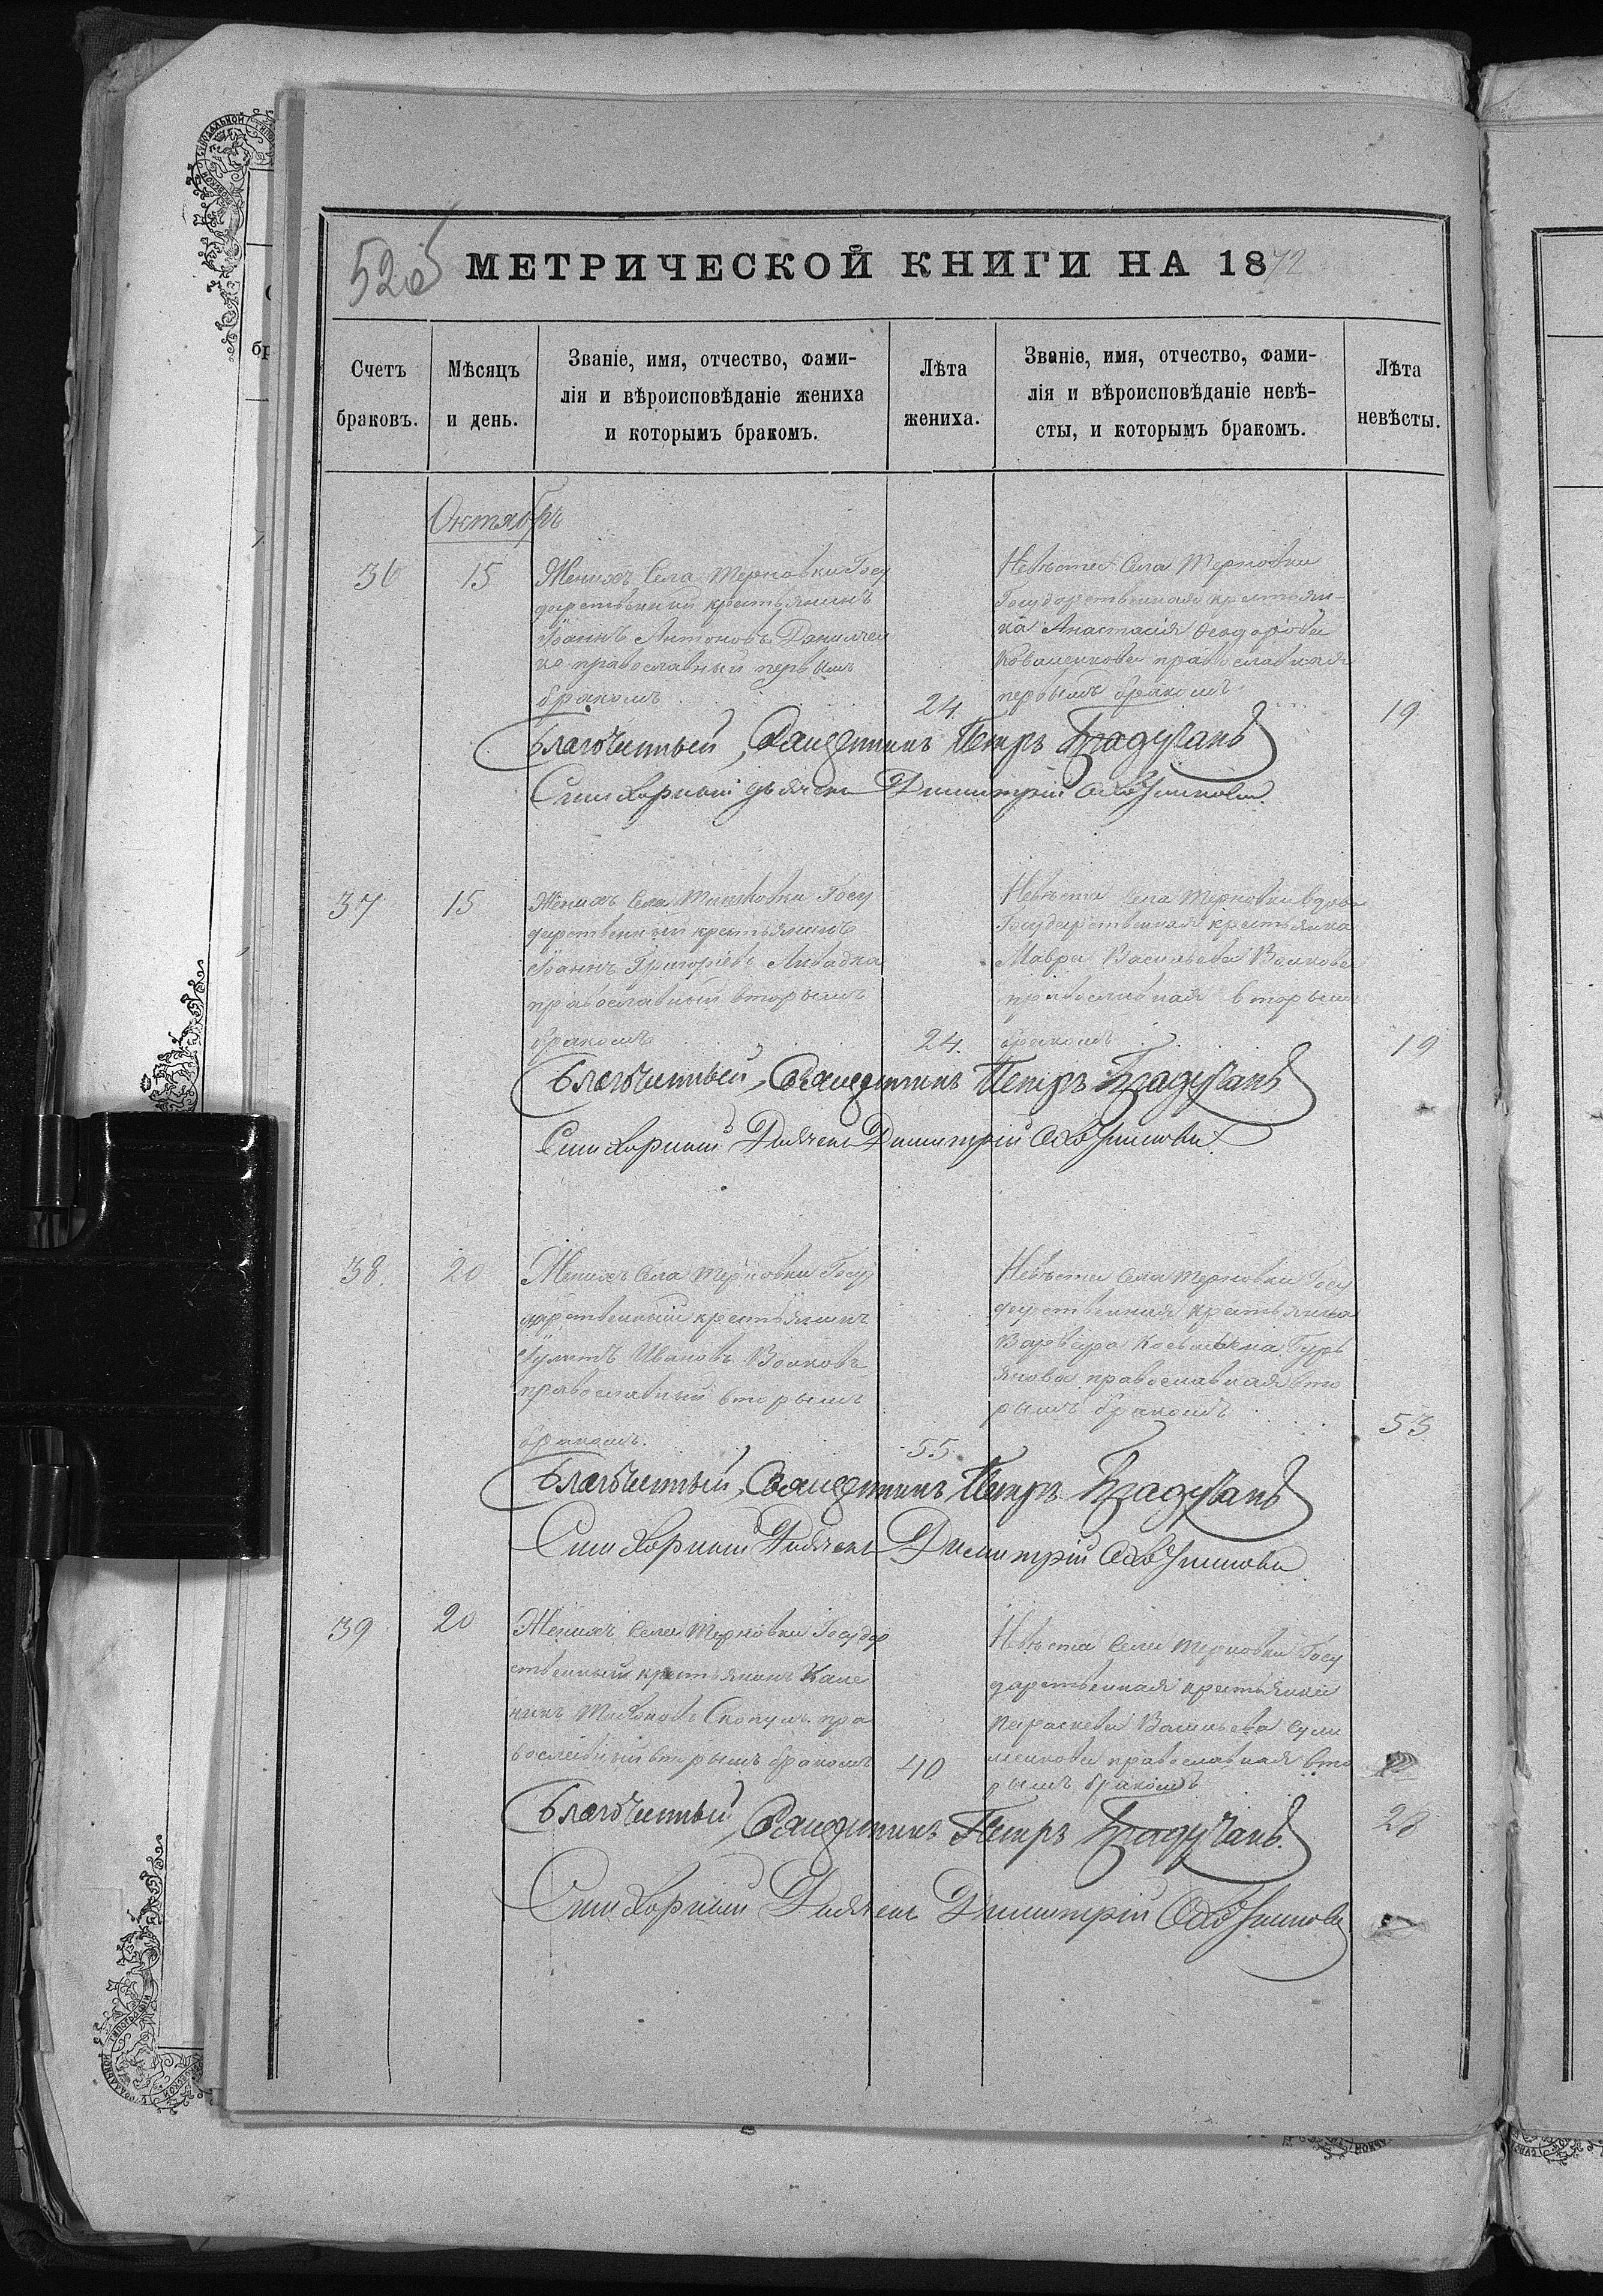 52об
МЕТРИЧЕСКОЙ КНИГИ НА 1872
Счетъ браковъ.
Мѣсяцъ и день.
Званіе, имя, отчество, фами-
лія и вѣроисповѣданіе жениха
и которымъ бракомъ.
Лѣта жениха.
Званіе, имя, отчество, фами-
лія и вѣроисповѣданіе невѣ-
сты, и которымъ бракомъ.
Лѣта невѣсты.
Октябрь
36
15
Женихъ Села Терновки Госу
дарственный крестьянинъ
Іоаннъ Антоновъ Данилчен
ко православный первымъ
бракомъ
24.
Невѣста Села Терновки
Государственная крестьян-
ка Анастасія Ѳеодорова
православная
первымъ бракомъ
19
Благочинный, Священникъ Петръ
Стихарный дьячекъ Димитрій
37
15
Женихъ Села Госу
дарственный крестьянинъ
Іоаннъ Григоріевъ
православный вторымъ
бракомъ
24.
Невѣста Села Терновки вдова
Государственная крестьянка
Мавра Васильева Волкова
православная вторымъ
бракомъ
19
Благочинный, Священникъ Петръ
Стихарный Дьячекъ Димитрій
38.
20
Женихъ Села Терновки Госу
дарственный крестьянинъ
Ивановъ Волковъ
православный вторымъ
бракомъ.
55.
Невѣста Села Терновки Госу
дарственная крестьянка
Варвара Косьмина Гурь
янова православная вто
рымъ бракомъ
53
Благочинный, Священникъ Петръ
Стихарный Дьячекъ Димитрій
39
20
Женихъ Села Терновки Государ
ственный крестьянинъ
пра
вославный вторымъ бракомъ
40
Невѣста Села Терновки Госу
дарственная крестьянка
Параскева Васильева
православная вто
рымъ бракомъ
28
Благочинный, Священникъ Петръ
Стихарный Дьячекъ Димитрій